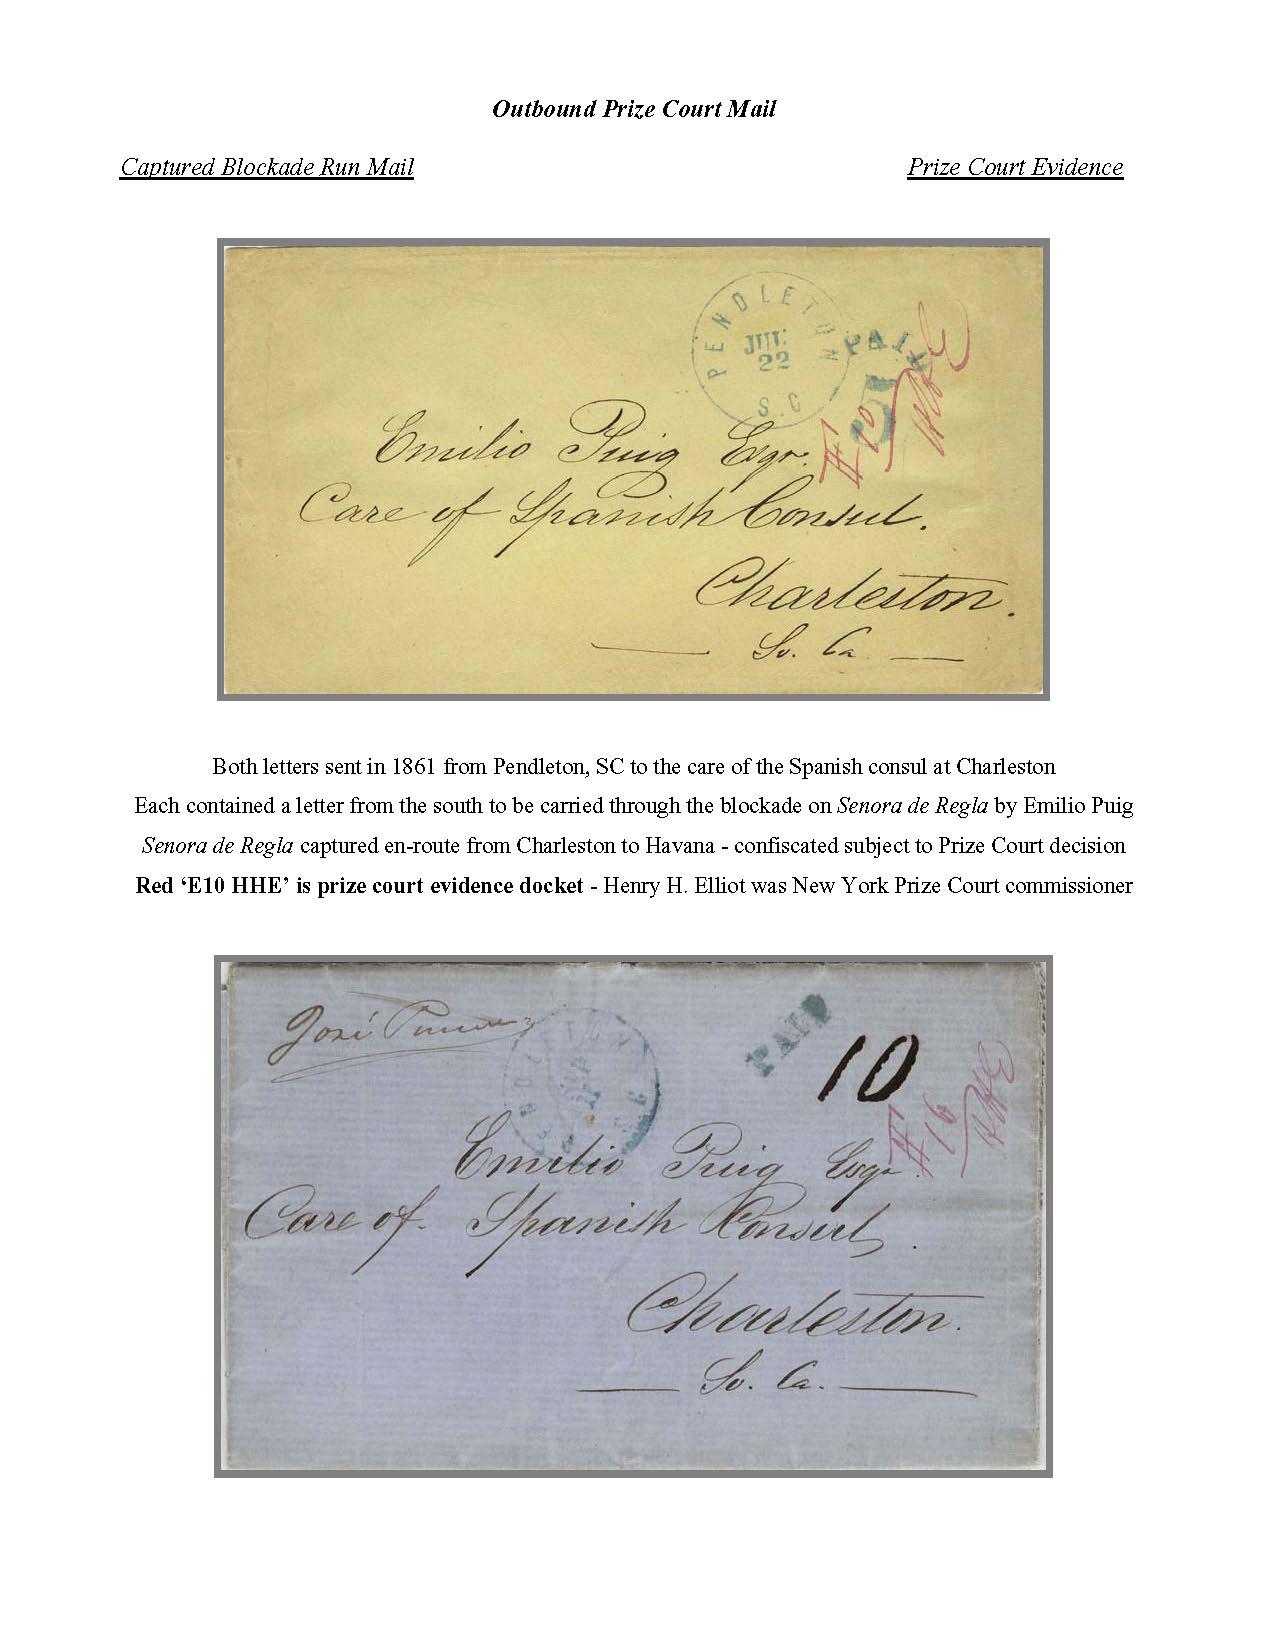 Outbound Prize Court Mail
Captured Blockade Run Mail Prize Court Evidence
PENDLETON
JUL
22
S.C
PAID
5
# 10 HHE
Emilio Puig Esqr.
Care of Spanish Consul.
Charleston.
So. Ca
Both letters sent in 1861 from Pendleton, SC to the care of the Spanish consul at Charleston
Each contained a letter from the south to be carried through the blockade on Senora de Regla by Emilio Puig
Senora de Regla captured en-route from Charleston to Havana - confiscated subject to Prize Court decision
Red ‘E10 HHE’ is prize court evidence docket - Henry H. Elliot was New York Prize Court commissioner
José
PAID
10
# 16 HHE
Emilio Puig Esqr
Care of Spanish Consul.
Charleston.
So. Ca.